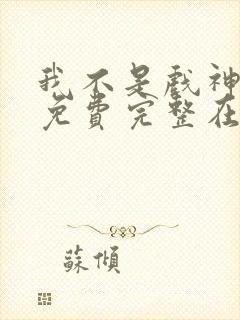 我不是戲神
免費完整在
蘇傾